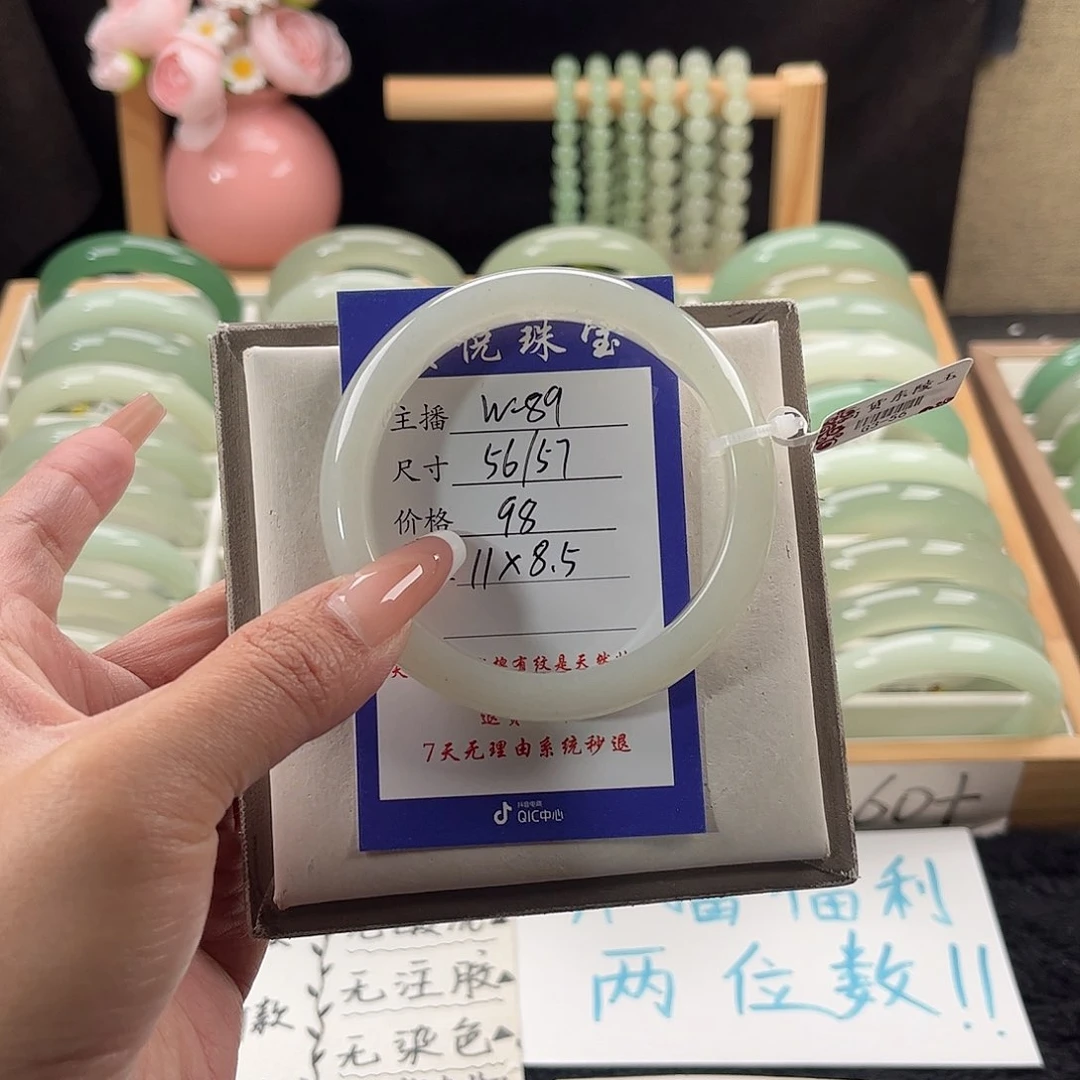 悦珠宝
主播 W-89
尺寸 56/57
价格 98
11×8.5
棉有纹是天然
退货
7天无理由系统秒退
抖音电商
QIC中心
贵东陵玉
60+
播福利
两位数!!
款
无注胶
无染色